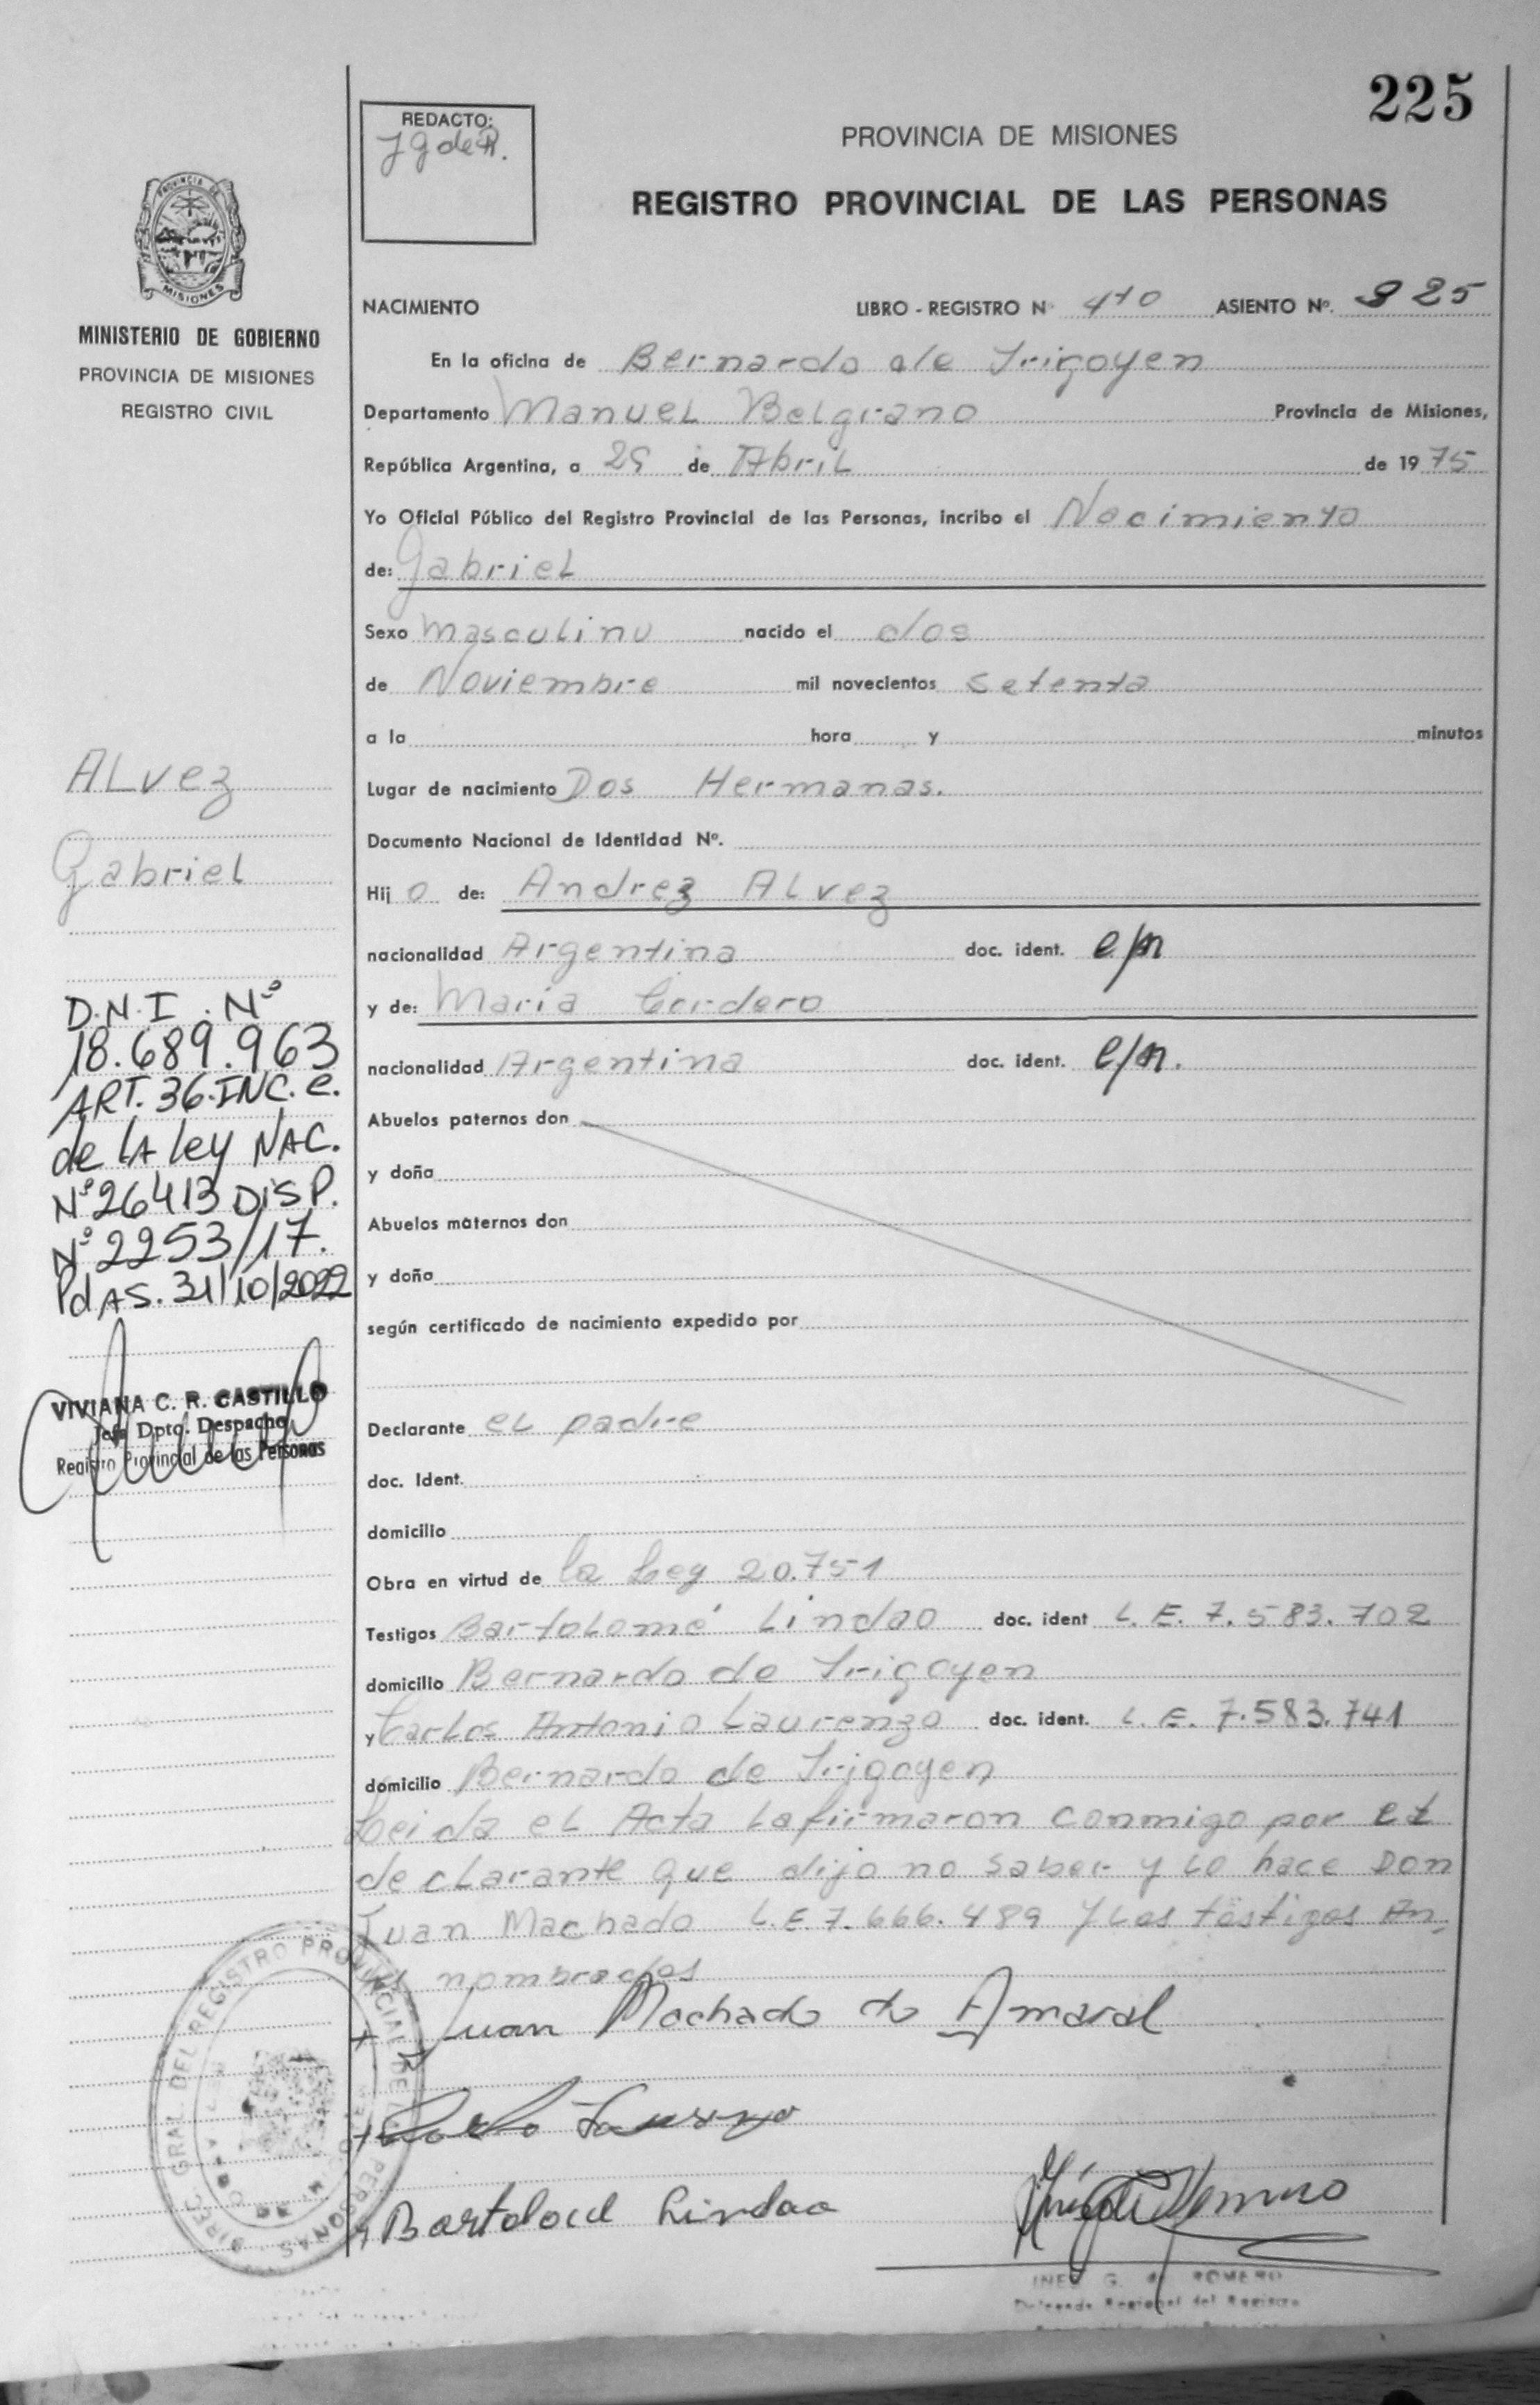 225
REDACTO:
PROVINCIA DE MISIONES
REGISTRO PROVINCIAL DE LAS PERSONAS
PROVINCIA DE
MISIONES
MINISTERIO DE GOBIERNO
PROVINCIA DE MISIONES
REGISTRO CIVIL
NACIMIENTO LIBRO - REGISTRO Nº 410 ASIENTO Nº. 825
En la oficina de Bernardo de Irigoyen
Departamento Manuel Belgrano Provincia de Misiones,
República Argentina, a 29 de Abril de 1975
Yo Oficial Público del Registro Provincial de las Personas, incribo el Nacimiento
de: Gabriel
Sexo Masculino nacido el dos
de Noviembre mil novecientos setenta
a la hora y minutos
Lugar de nacimiento Dos Hermanas.
Documento Nacional de Identidad Nº.
Hijo de: Andrez Alvez
nacionalidad Argentina doc. ident. e/n
y de: Maria Cordero
nacionalidad Argentina doc. ident. e/n.
Abuelos paternos don
y doña
Abuelos maternos don
y doña
según certificado de nacimiento expedido por
Declarante el padre
doc. Ident.
domicilio
Obra en virtud de la Ley 20.751
Testigos Bartolomé Lindao doc. ident L.E. 7.583.702
domicilio Bernardo de Irigoyen
y Carlos Antonio Laurenzo doc. ident. L.E. 7.583.741
domicilio Bernardo de Irigoyen
Leida el Acta la firmaron conmigo por el
declarante que dijo no saber y lo hace Don
Juan Machado L.E 7.666.489 y los testigos An
tes nombrados
Juan Machado do Amaral
Bartolomé Lindao
INES G. de ROMERO
ALvez
Gabriel
D.N.I. Nº
18.689.963
ART. 36.INC. e.
de LA Ley NAC.
Nº 26413 DISP.
Nº 2253/17.
PdAS. 31/10/2022
VIVIANA C. R. CASTILLO
Jefa Dpto. Despacho
Registro Provincial de las Personas
DIREC. GRAL. DEL REGISTRO PROVINCIAL DE LAS PERSONAS